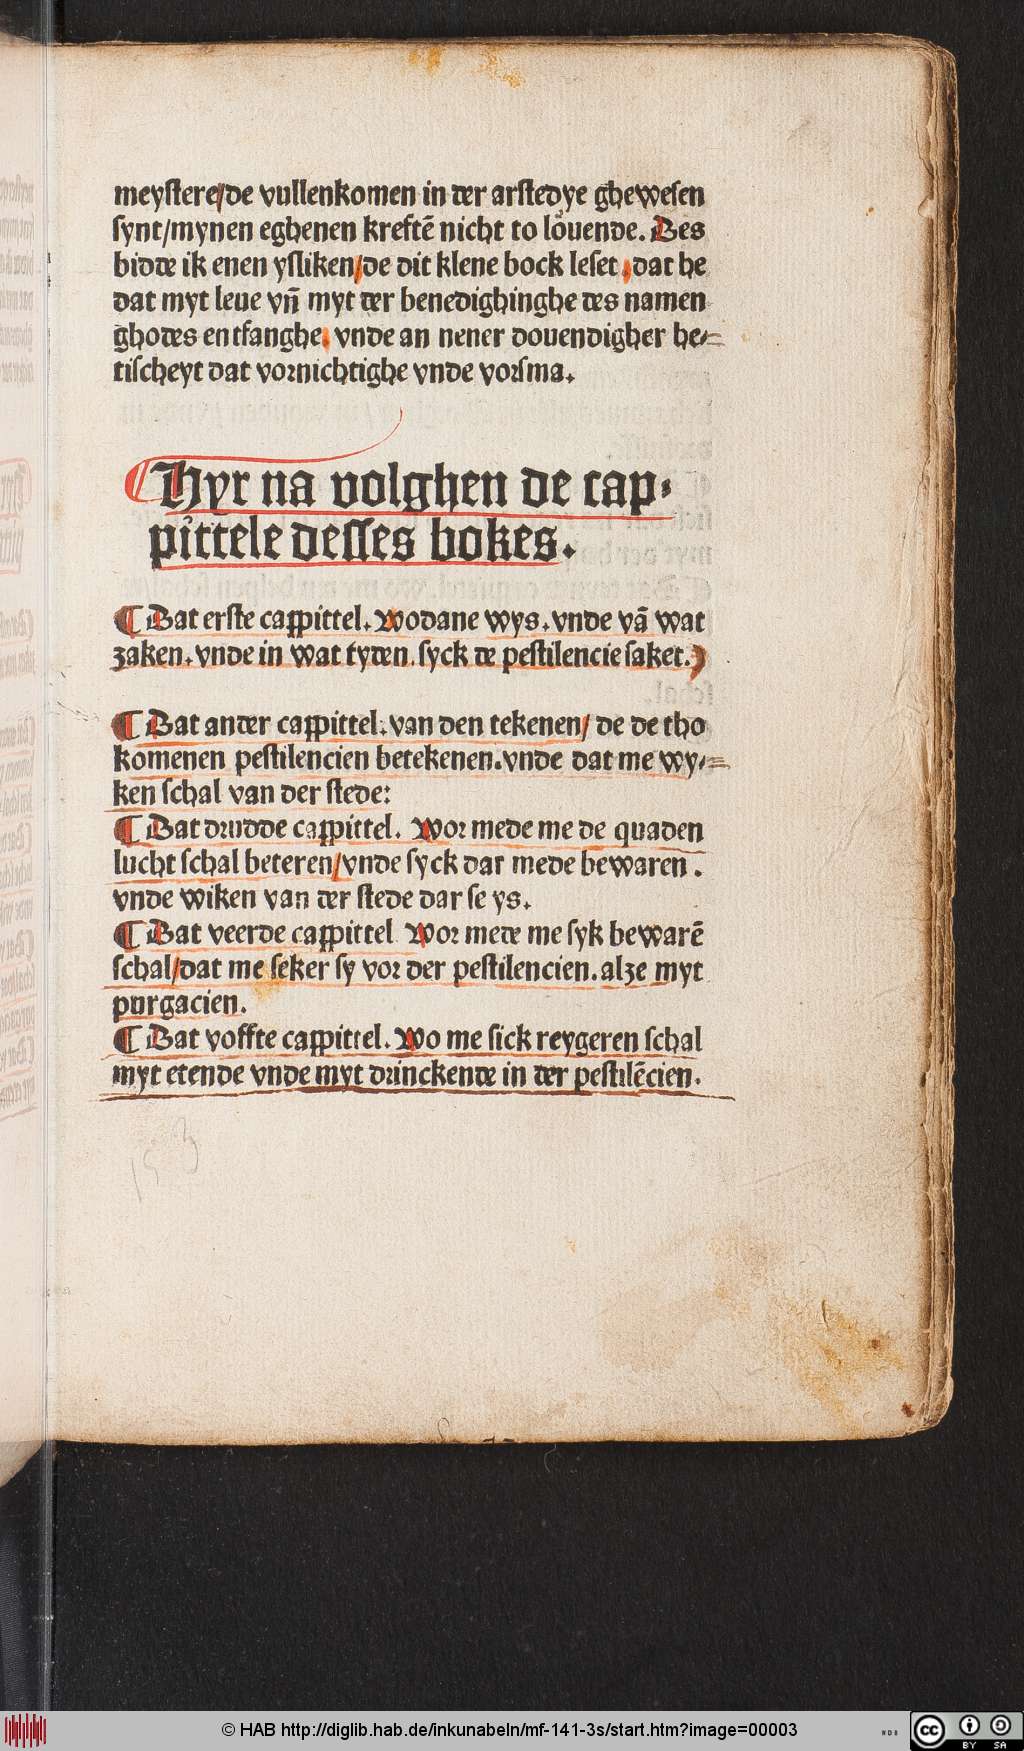 meystere/de vullenkomen in der arstedye ghewesen
synt/mynen eghenen kreftē nicht to lőuende. Des
bidde ik enen ysliken/de dit klene bock leset, dat he
dat myt leue vn̄ myt der benedighinghe des namen
ghodes entfanghe, vnde an nener douendigher he⸗
tischeyt dat vornichtighe vnde vorsma.
Hyr na volghen de cap⸗
pittele desses bokes.
¶ Dat erste cappittel. Wodane wys. vnde vā wat
zaken. vnde in wat tyden. syck de pestilencie saket.
¶ Dat ander cappittel. van den tekenen/ de de tho
komenen pestilencien betekenen. vnde dat me wy⸗
ken schal van der stede:
¶ Dat drudde cappittel. Wor mede me de quaden
lucht schal beteren/vnde syck dar mede bewaren.
vnde wiken van der stede dar se ys.
¶ Dat veerde cappittel Wor mede me syk bewarē
schal/dat me seker sy vor der pestilencien. alze myt
purgacien.
¶ Dat voffte cappittel. Wo me sick reygeren schal
myt etende vnde myt drinckende in der pestilēcien.
© HAB http://diglib.hab.de/inkunabeln/mf-141-3s/start.htm?image=00003
WDB
cc BY SA